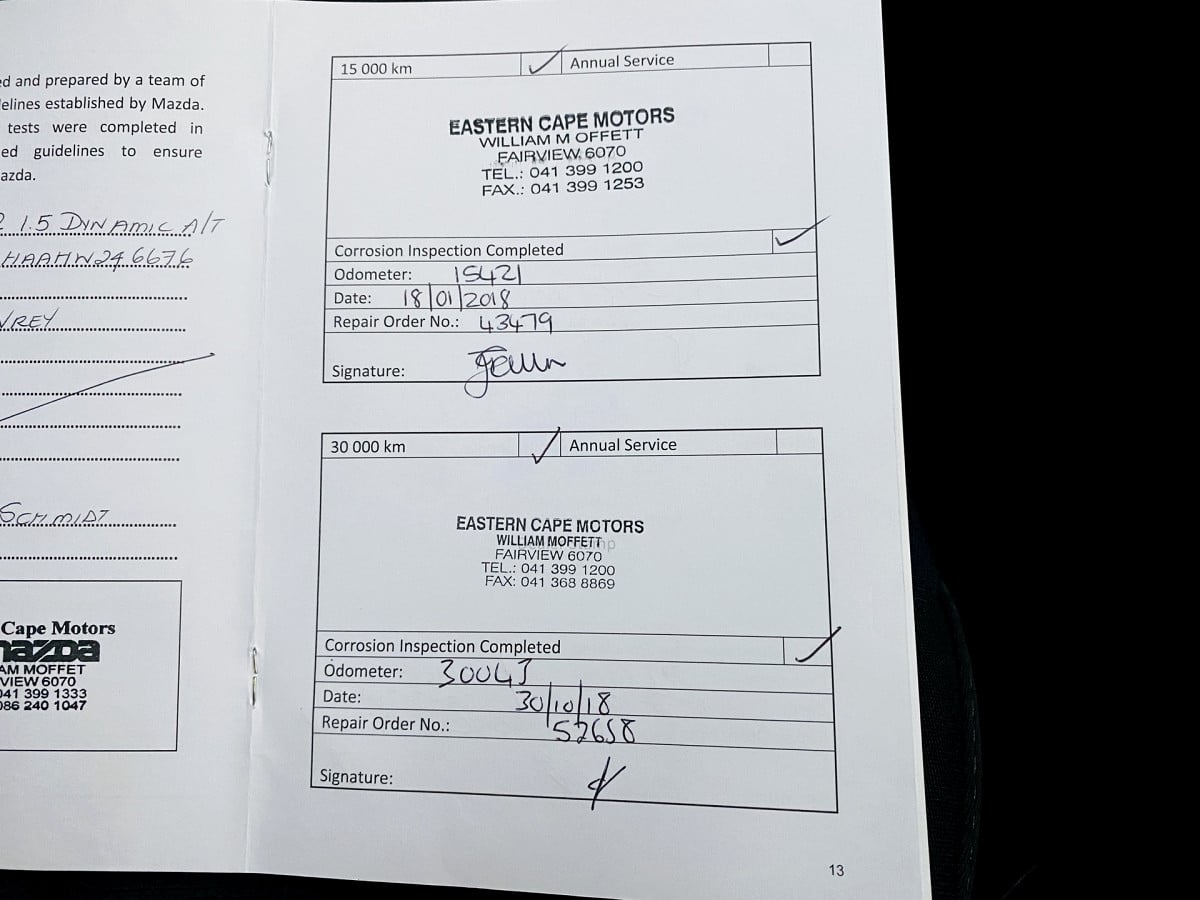 ed and prepared by a team of
elines established by Mazda.
tests were completed in
ed guidelines to ensure
azda.
2 1.5 DYNAMIC A/T
HAAHW246676
VREY
SCHMIDT
Cape Motors
mazda
AM MOFFET
VIEW 6070
041 399 1333
086 240 1047
15 000 km Annual Service
EASTERN CAPE MOTORS
WILLIAM M OFFETT
FAIRVIEW 6070
TEL.: 041 399 1200
FAX.: 041 399 1253
Corrosion Inspection Completed
Odometer: 15421
Date: 18/01/2018
Repair Order No.: 43479
Signature:
30 000 km Annual Service
EASTERN CAPE MOTORS
WILLIAM MOFFETT
FAIRVIEW 6070
TEL.: 041 399 1200
FAX: 041 368 8869
Corrosion Inspection Completed
Odometer: 30043
Date: 30/10/18
Repair Order No.: 52658
Signature:
13